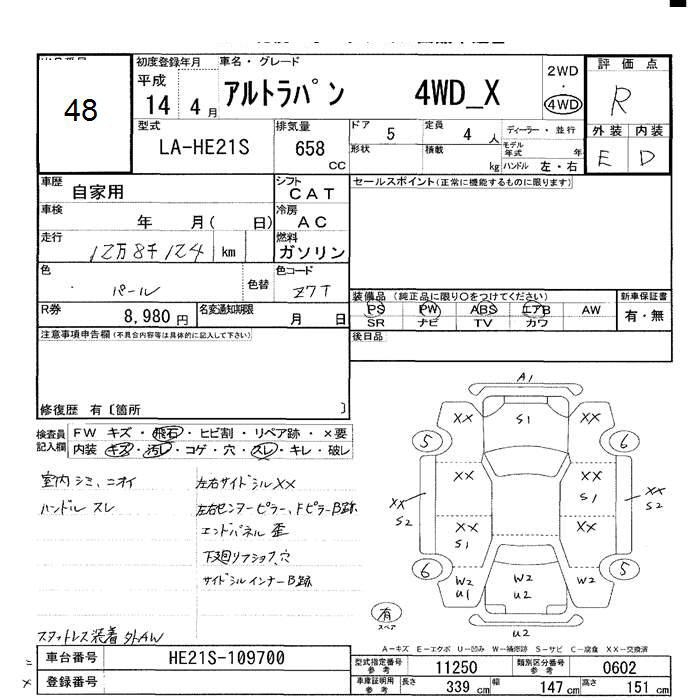 48
初度登録年月
平成
14年 4月
車名・グレード
アルトラパン 4WD_X
2WD
・
4WD
評価点
R
外装 内装
E D
型式
LA-HE21S
排気量
658
CC
ドア 5
定員 4 人
形状
積載 kg
ディーラー・並行
モデル年式 年
ハンドル 左・右
車歴
自家用
シフト
CAT
セールスポイント(正常に機能するものに限ります)
車検
年 月( 日)
冷房
AC
走行
12万8千124 km
燃料
ガソリン
色
パール
色替
色コード
Z7T
装備品(純正品に限り○をつけてください)
PS PW ABS エアB AW
SR ナビ TV カワ
新車保証書
有・無
R券
8,980円
名変通知期限
月 日
後日品
注意事項申告欄(不具合内容等は具体的に記入して下さい)
修復歴 有〔箇所 〕
検査員記入欄
FW キズ・飛石・ヒビ割・リペア跡・×要
内装 キズ・汚レ・コゲ・穴・スレ・キレ・破レ
室内シミ、ニオイ
ハンドルスレ
左右サイドシルXX
左右センターピラー、FピラーB跡
エンドパネル歪
下廻リアショク、穴
サイドシルインナーB跡
スタットレス装着 外AW
A1
XX S1 XX
5 6
XX XX
S1
XX S2
XX S2
XX XX
S1
6 5
W2 U1
W2 U2
W2
有
スペア
U2
A-キズ E-エクボ U-凹み W-補修跡 S-サビ C-腐食 XX-交換済
車台番号 HE21S-109700
登録番号
型式指定番号 参考 11250
類別区分番号 参考 0602
車庫証明用 参考 長さ 339 cm 幅 147 cm 高さ 151 cm